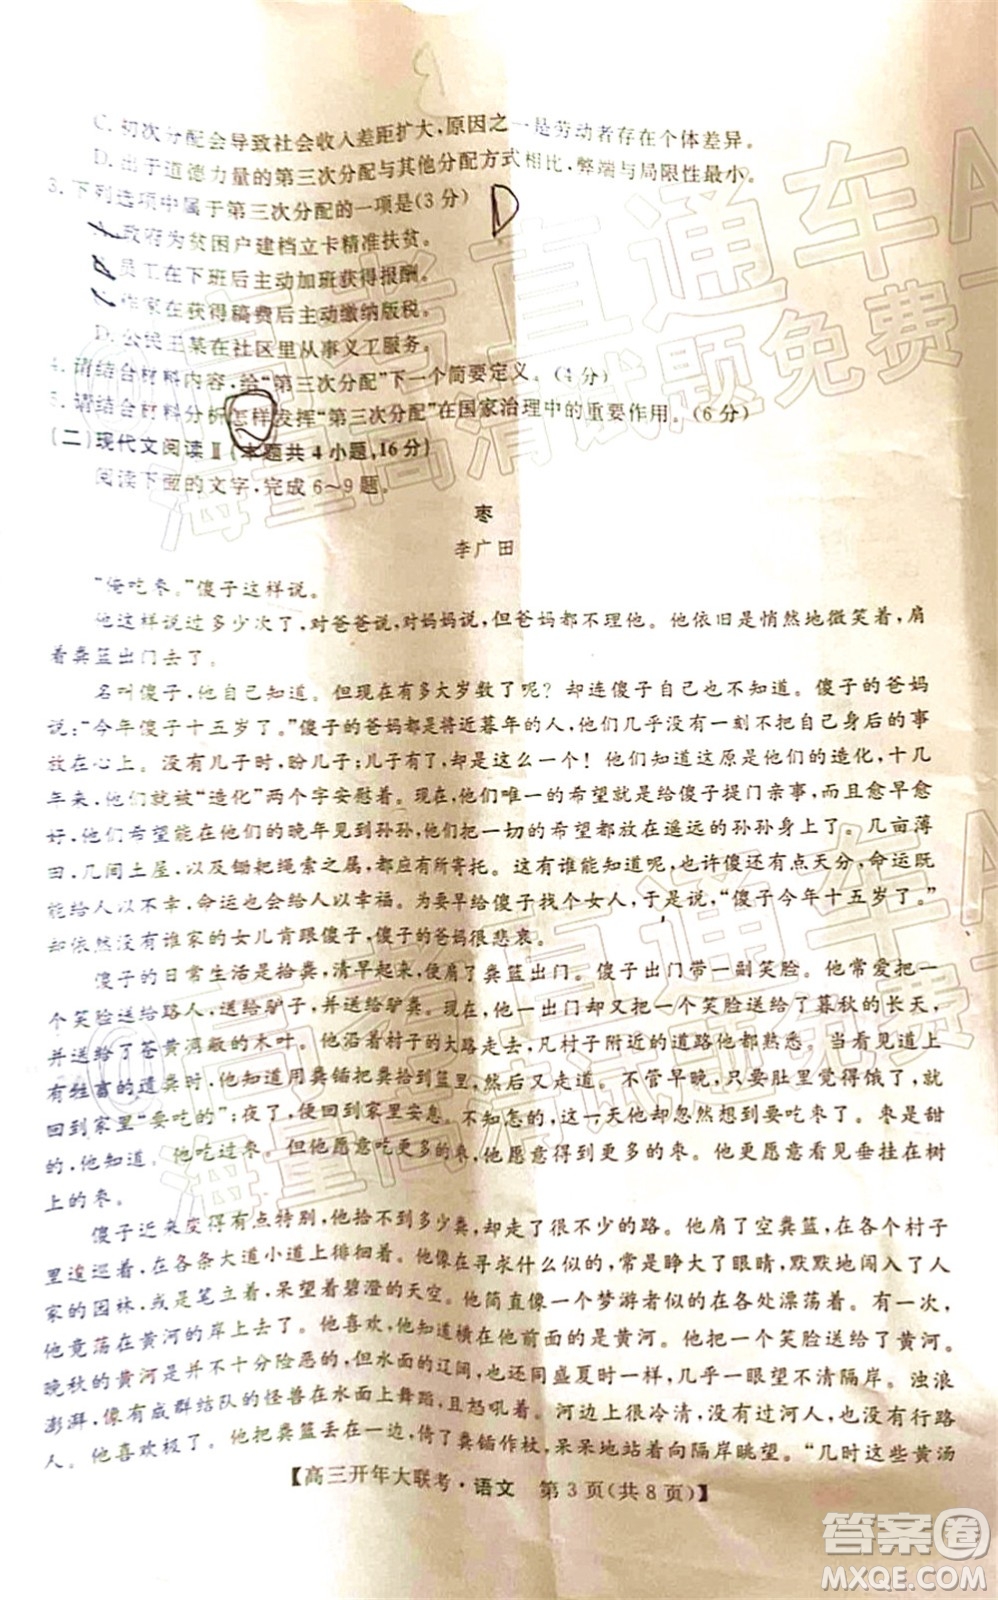 C. 初次分配会导致社会收入差距扩大，原因之一是劳动者存在个体差异。
D. 出于道德力量的第三次分配与其他分配方式相比，弊端与局限性最小。
3. 下列选项中属于第三次分配的一项是(3分) D
政府为贫困户建档立卡精准扶贫。
员工在下班后主动加班获得报酬。
作家在获得稿费后主动缴纳版税。
D. 公民王某在社区里从事义工服务。
4. 请结合材料内容，给“第三次分配”下一个简要定义。(4分)
5. 请结合材料分析怎样发挥“第三次分配”在国家治理中的重要作用。(6分)
(二)现代文阅读Ⅱ(本题共4小题，16分)
阅读下面的文字，完成6～9题。
枣
李广田
“俺吃枣。”傻子这样说。
他这样说过多少次了，对爸爸说，对妈妈说，但爸妈都不理他。他依旧是悄然地微笑着，肩
着粪篮出门去了。
名叫傻子，他自己知道。但现在有多大岁数了呢？却连傻子也不知道。傻子的爸妈
说：“今年傻子十五岁了。”傻子的爸妈都是将近暮年的人，他们几乎没有一刻不把自己身后的事
放在心上。没有儿子时，盼儿子；儿子有了，却是一个呆子。他们知道这原是他们的造化，十几
年来，他们就被“造化”两个字安慰着。现在，他们唯一的希望就是给傻子提门亲事，而且愈早愈
好，他们希望能在他们的晚年见到孙孙，他们把一切的希望都放在遥远的孙孙身上了。几亩薄
田、几间土屋，以及锄耙绳索之属，都应有所寄托。这又有谁能知道呢，也许傻子还有点天分，命运既
能给人以不幸，命运也会给人以幸福。为要早给傻子找个女人，于是就说“傻子今年十五岁了。”
却依然没有谁家的女儿肯跟傻子，傻子的爸妈很悲哀。
傻子的日常生活是拾粪，清早起来，便肩了粪篮出门。傻子出门带一副笑脸。他常爱把一
个笑脸送给路人，送给驴子，并送给驴粪。他一出门却又把一个笑脸送给了暮秋的长天，
并送给了苍黄凋敝的木叶。他沿着村子的大路走去，凡村子附近的道路他都熟悉。当看见路上
有牲畜的遗粪时，他知道用粪锸把粪拾到篮里，然后又走道。不管早晚，只要肚里觉得饿了，就
回到家里“要吃的”；夜了，便回到家里安息。不知怎的，这一天他却忽然想到要吃枣了。枣是甜
的，他知道。他吃过枣。但他愿意吃更多的枣，他愿意吃更好的枣。他更愿意看见垂挂在树
上的枣。
傻子近来变得有点特别，他拾不到多少粪，却走了很不少的路。他肩了空粪篮，在各个村子
里逡巡着，在各条大道小道上徘徊着。他像在寻求什么似的，常是睁大了眼睛，默默地闯入了人
家的园林，或是笔立着，呆望着碧澄的天空。他简直像一个梦游者似的在各处漂荡着。有一次，
他竟荡在黄河的岸上了。他喜欢，他知道横在他前面的是黄河。他把一个笑脸送给了黄河。
晚秋的黄河是并不十分险恶的，但水面的辽阔，还同盛夏时一样，几乎一眼望不清隔岸。浊浪
澎湃，像有成群结队的怪兽在水面上舞蹈，怒吼着。河边上很冷清，没有过河人，也没有行路
人。他喜欢极了。他把粪篮丢在一边，倚了粪锸作杖，呆呆地站着向隔岸眺望。“几时这些黄汤
【高三开年大联考·语文 第3页(共8页)】
@高考直通车A
海量高清试题免费
@高考直通车A
海量高清试题免费
答案圈
MXQE.COM